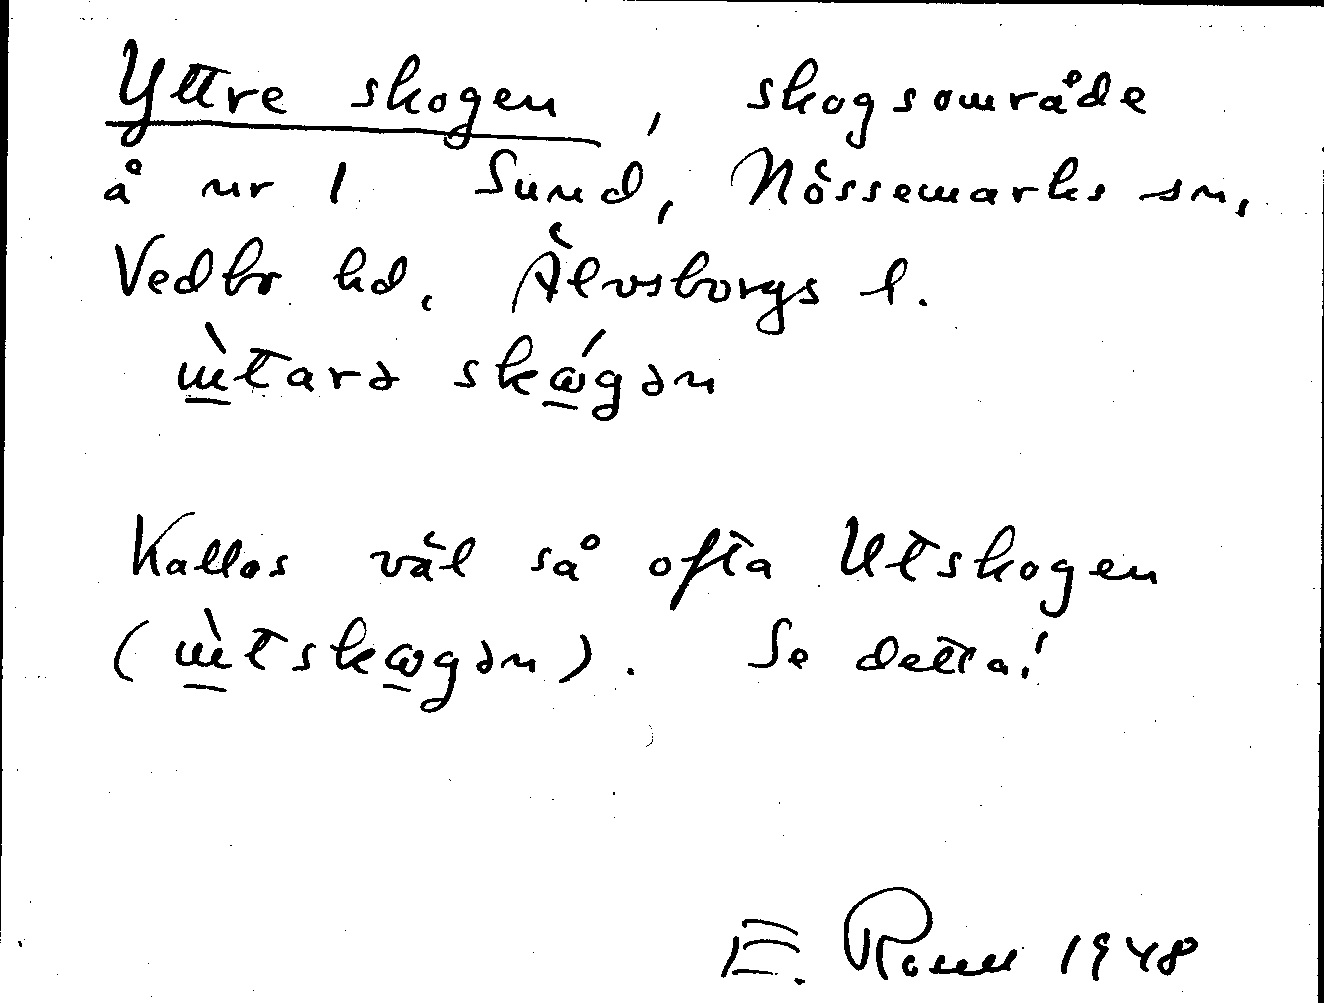 Yttre skogen, skogsområde
å nr 1 Sund, Nössemarks sn,
Vedbo hd, Älvsborgs l.
ùtarə skógən
Kallas väl så ofta Utskogen
(ùtskogən). Se detta!
E. 1948